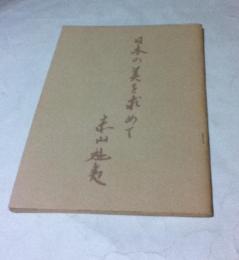 日本の美を求めて
東山魁夷